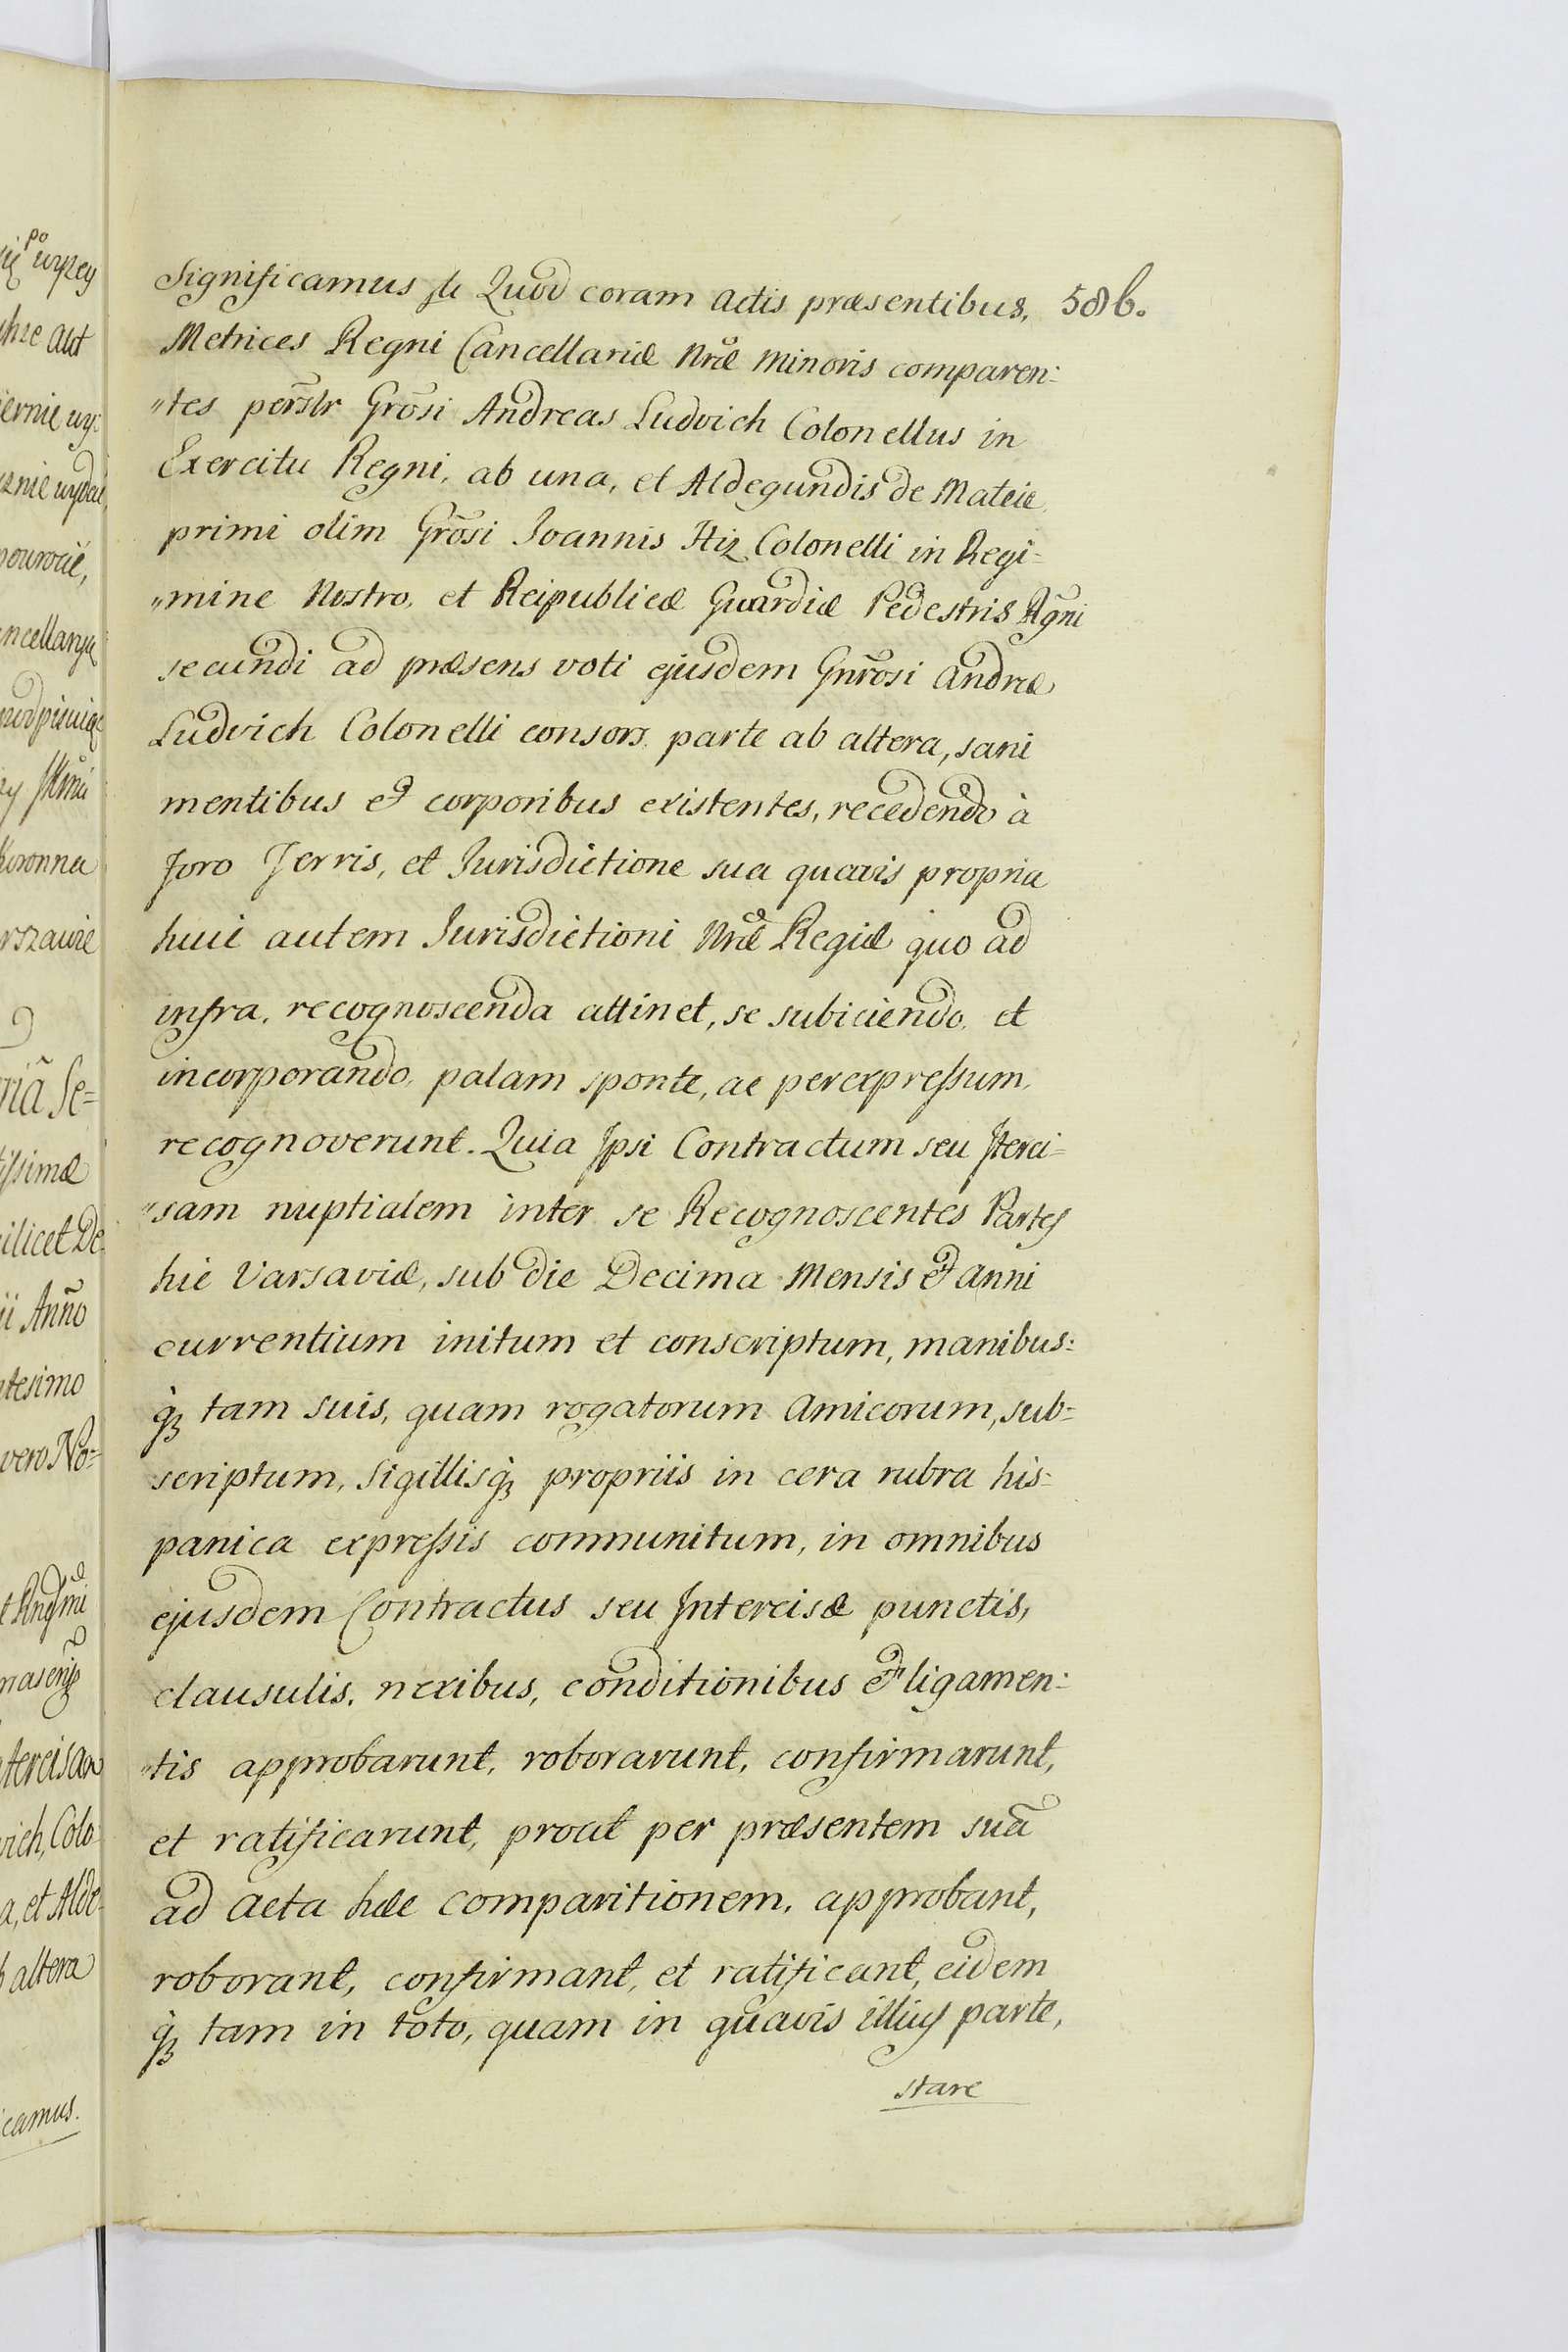 Significamus &c Quod coram Actis præsentibus, 586.
Metrices Regni Cancellariæ Nræ Minoris comparen:
"tes persłr Grosi Andreas Ludvich Colonellus in
Exercitu Regni, ab una, et Aldegundis de Mateie
primi olim Grosi Joannis Hiz Colonelli in Regi=
"mine Nostro, et Reipublicæ Guardiæ Pedestris Rgni
secundi ad præsens voti ejusdem Gnrosi Andreæ
Ludvich Colonelli consors parte ab altera, sani
mentibus et corporibus existentes, recedendo à
foro Terris, et Jurisdictione sua quavis propria
huic autem Jurisdictioni Nræ Regiæ quo ad
infra, recognoscenda attinet, se subiciendo, et
incorporando, palam sponte, ac perexpressum,
recognoverunt. Quia Ipsi Contractum seu Iterci=
"sam nuptialem inter se Recognoscentes Partes
hic Varsaviæ, sub die Decima Mensis et Anni
currentium initum et conscriptum, manibus:
q̀ȝ tam suis, quam rogatorum Amicorum, sub=
scriptum, Sigillisq̀ȝ propriis in cera rubra his=
panica expressis communitum, in omnibus
ejusdem Contractus seu Intercisæ punctis,
clausulis, nexibus, conditionibus et ligamen:
"tis approbarunt, roborarunt, confirmarunt,
et ratificarunt, prout per præsentem suã
ad Acta hæc comparitionem, approbant,
roborant, confirmant, et ratificant, eidem
q̀ȝ tam in toto, quam in quavis illius parte,
stare